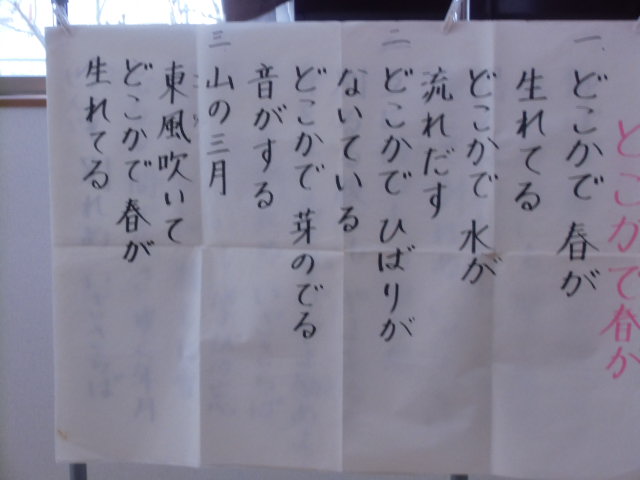 どこかで春が
一、どこかで 春が
生れてる
どこかで 水が
流れだす
二 どこかで ひばりが
ないている
どこかで 芽のでる
音がする
三 山の三月
東風吹いて
どこかで 春が
生れてる